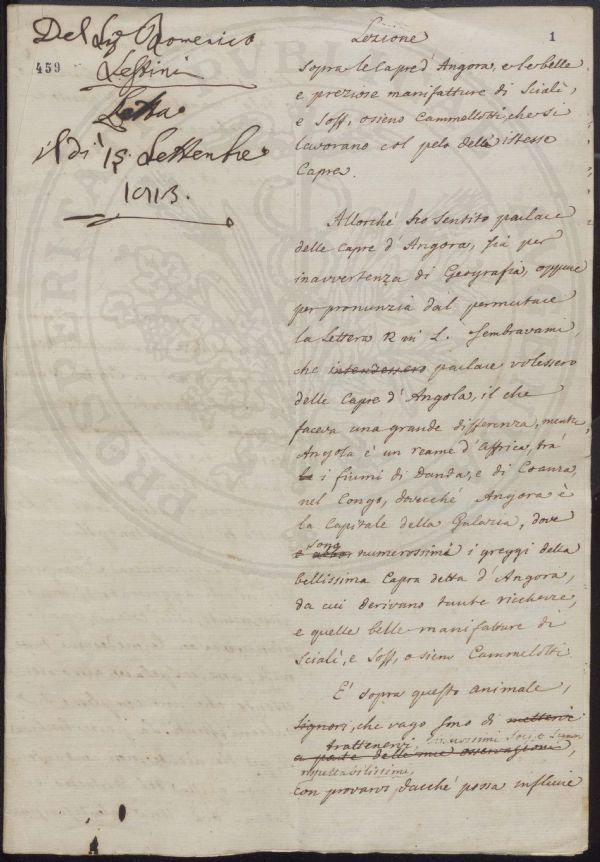 Del Sig. Domenico
Sestini
Letta
il dì 15. Settembre
1813.
459
1
Lezione
sopra le Capre d'Angora, e le belle
e preziose manifatture di Scialì,
e Soff, o sieno Cammellotti, che si
lavorano col pelo delle istesse
Capre.
Allorché ho sentito parlare
delle Capre d'Angora, sia per
inavvertenza di Geografia, oppure
per pronunzia dal permutare
la lettera R in L. Sembravami,
che intendessero parlare volessero
delle Capre d'Angola, il che
faceva una grande differenza, mentre
Angola è un reame d'Affrica, trà
le i fiumi di Danda, e di Coanza,
nel Congo, dovecché Angora è
la Capitale della Galazia, dove
sono
e numerossimi i greggi della
bellissima Capra detta d'Angora,
da cui derivano tante ricchezze,
e quelle belle manifatture di
Scialì, e Soff, o sieno Cammellotti
È sopra questo animale,
Signori, che vago sono di mettervi
trattenervi, Soci, e
a parte delle mie osservazioni,
rispettabilissimi,
con provarvi dacché possa influire